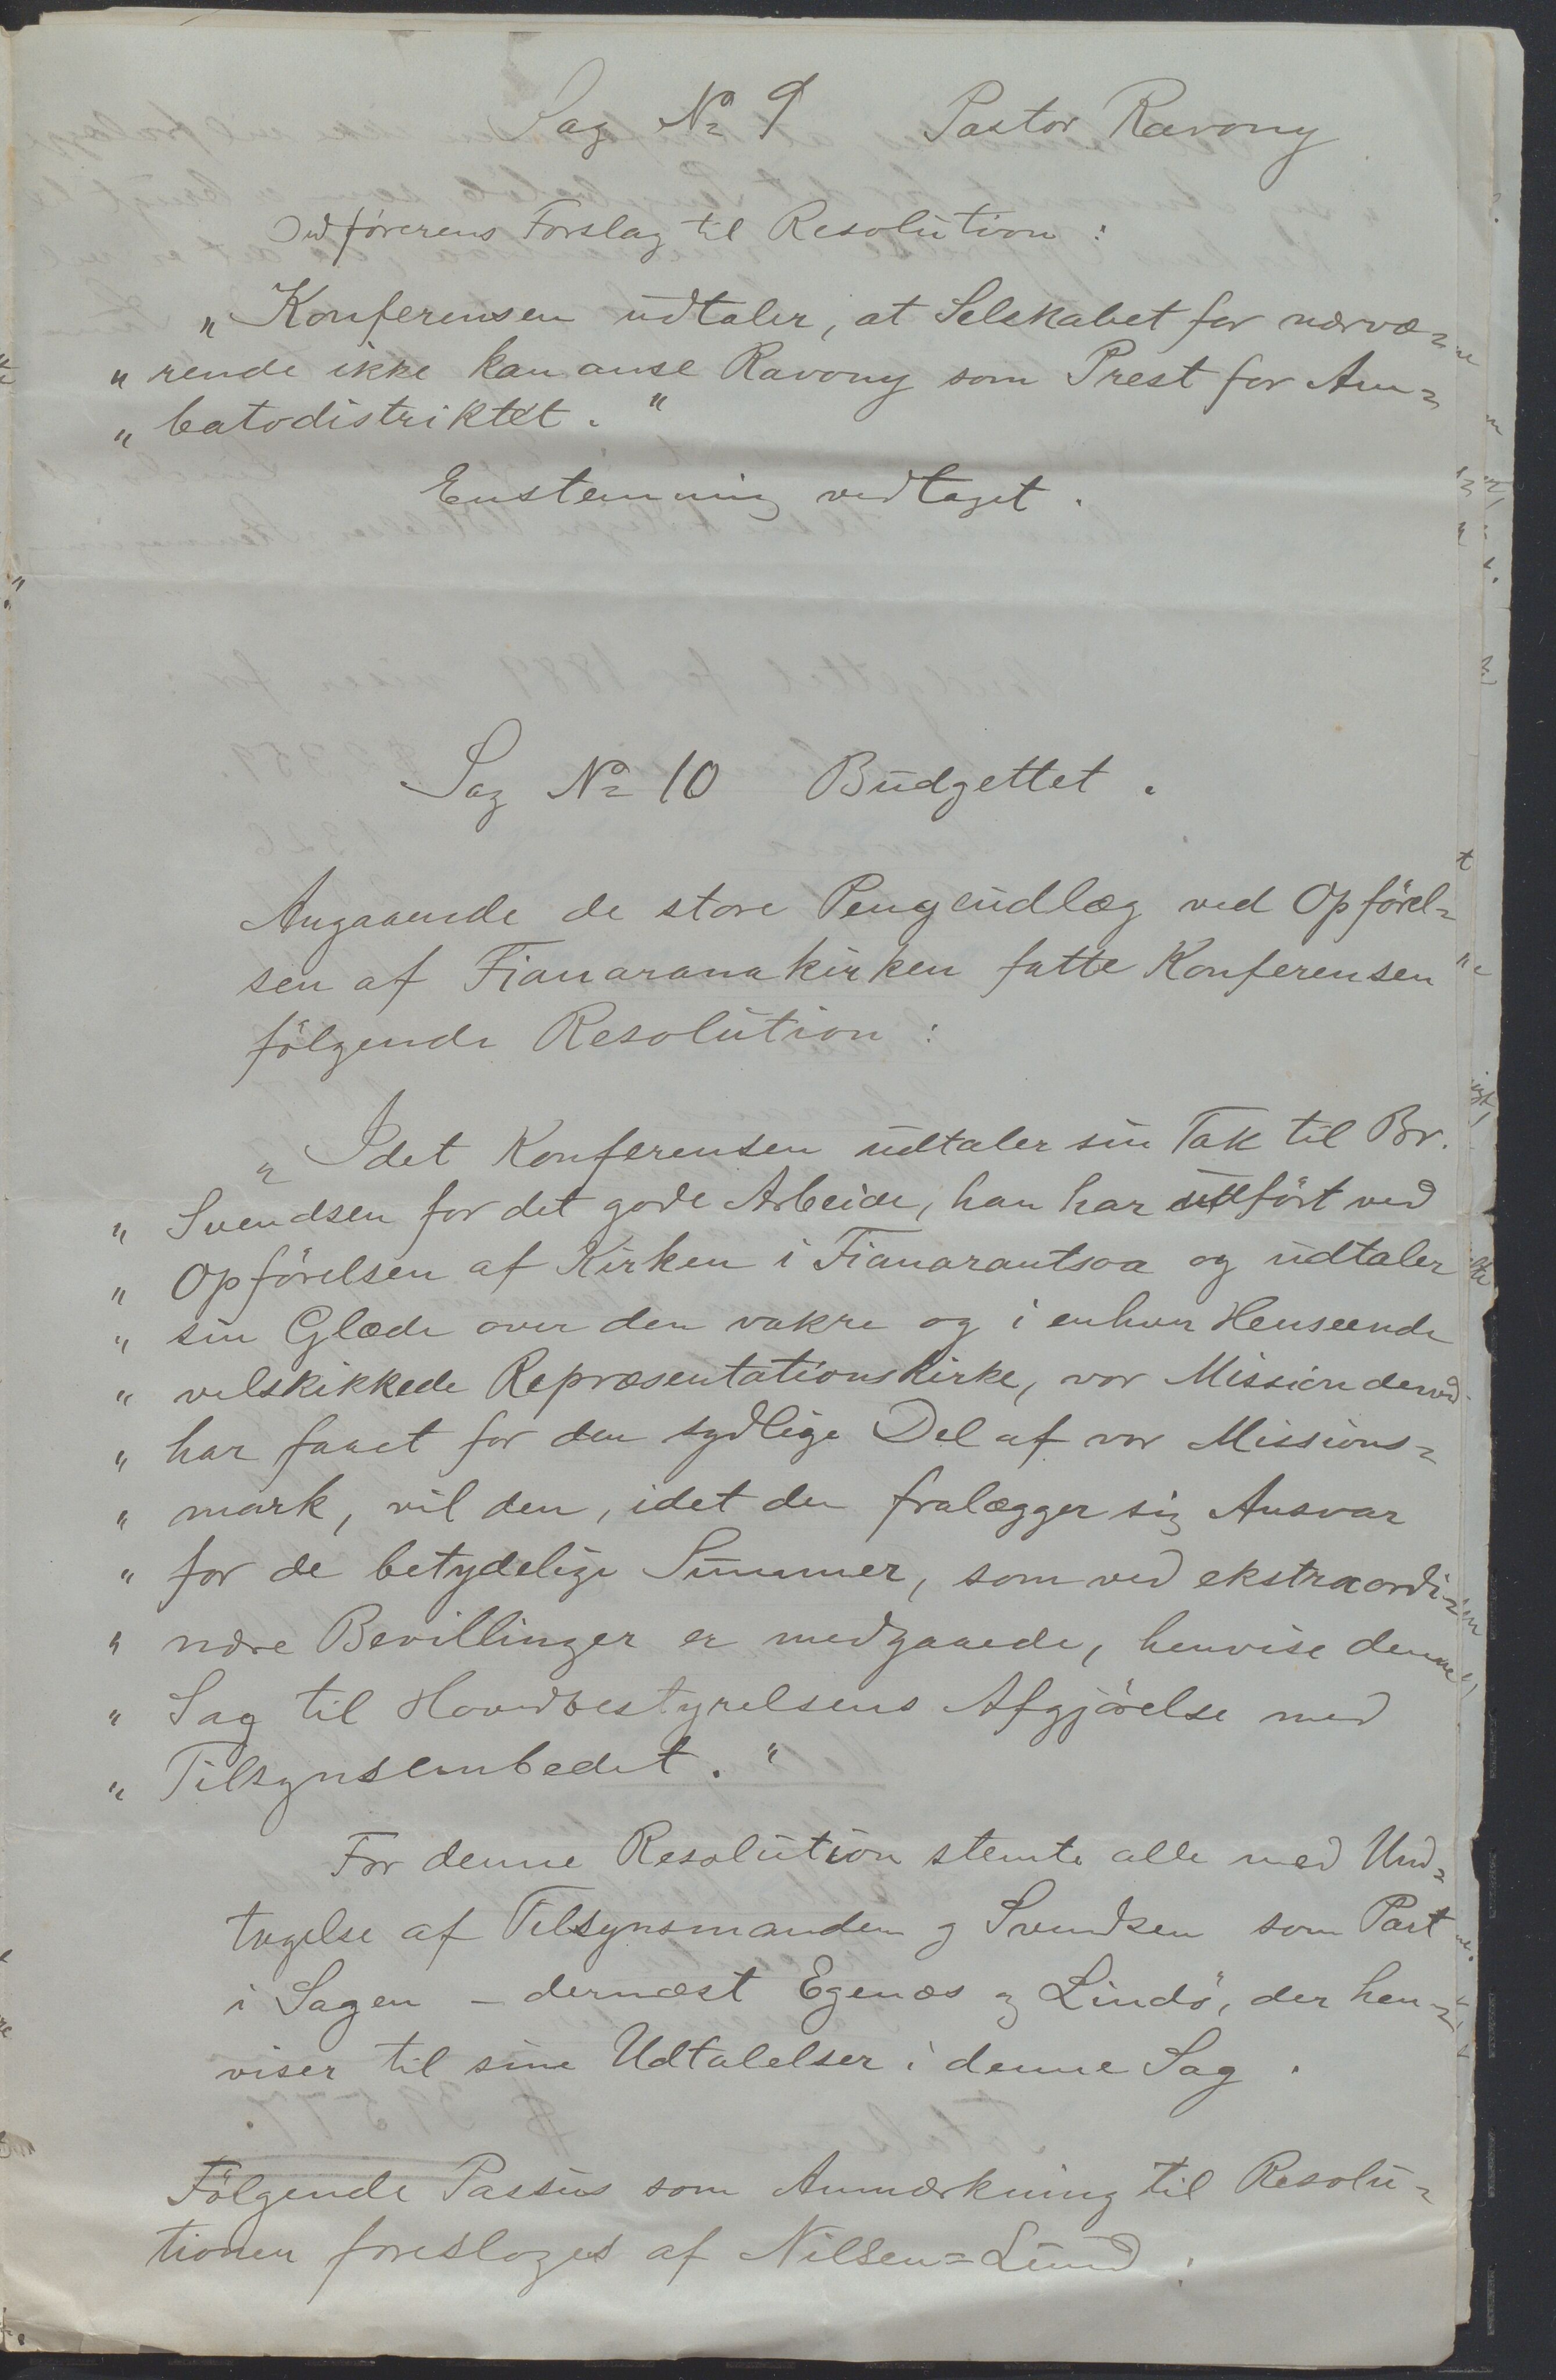 Sag № 9 Pastor Ravony
Ordförerens Forslag til Resolution:
„Konferensen udtaler, at Selskabet for nærvæ=
„rende ikke kan anse Ravony som Prest for Am=
„batodistriktet."
Enstemmig vedtaget.
Sag № 10 Budgettet.
Angaaende de store Pengeudlæg ved Opförel=
sen af Fianaranakirken fatte Konferensen
fölgende Resolution:
„Idet Konferensen udtaler sin Tak til Br.
„Svendsen for det gode Arbeide, han har udfört ved
„Opförelsen af Kirken i Fianarantsoa og udtaler
„sin Glæde over den vakre og i enhver Henseende
„velskikkede Repræsentationskirke, vor Mission derved
„har faaet for den sydlige Del af vor Missions=
„mark, vil den, idet den fralægger sig Ansvar
„for de betydelige Summer, som ved ekstraordi=
„nære Bevillinger er medgaaede, henvise denne
„Sag til Hovedbestyrelsens Afgjörelse med
„Tilsynsembedet."
For denne Resolution stemte alle med Und=
tagelse af Tilsynsmanden og Svendsen som Part
i Sagen – dernæst Egenæs og Lindö, der hen=
viser til sine Udtalelser i denne Sag.
Fölgende Passus som Anmærkning til Resolu=
tionen foresloges af Nilsen=Lund: